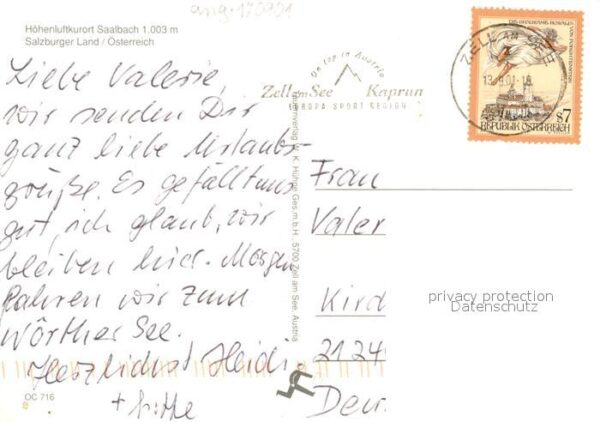 ang. 170901
Höhenluftkurort Saalbach 1.003 m
Salzburger Land / Österreich
Liebe Valerie,
wir senden Dir
ganz liebe Urlaubs-
grüße. Es gefällt uns
gut, ich glaub, wir
bleiben hier. Morgen
fahren wir zum
Wörther See.
Herzlichst Heidi
+
OC 716
On top in Austria
Zell am See Kaprun
EUROPA SPORT REGION
ZELL AM SEE
REPUBLIK ÖSTERREICH
S7
W. K. Hühne Ges.m.b.H., 5700 Zell am See, Austria
Frau
Valer
Kird
2124
Deu
privacy protection
Datenschutz